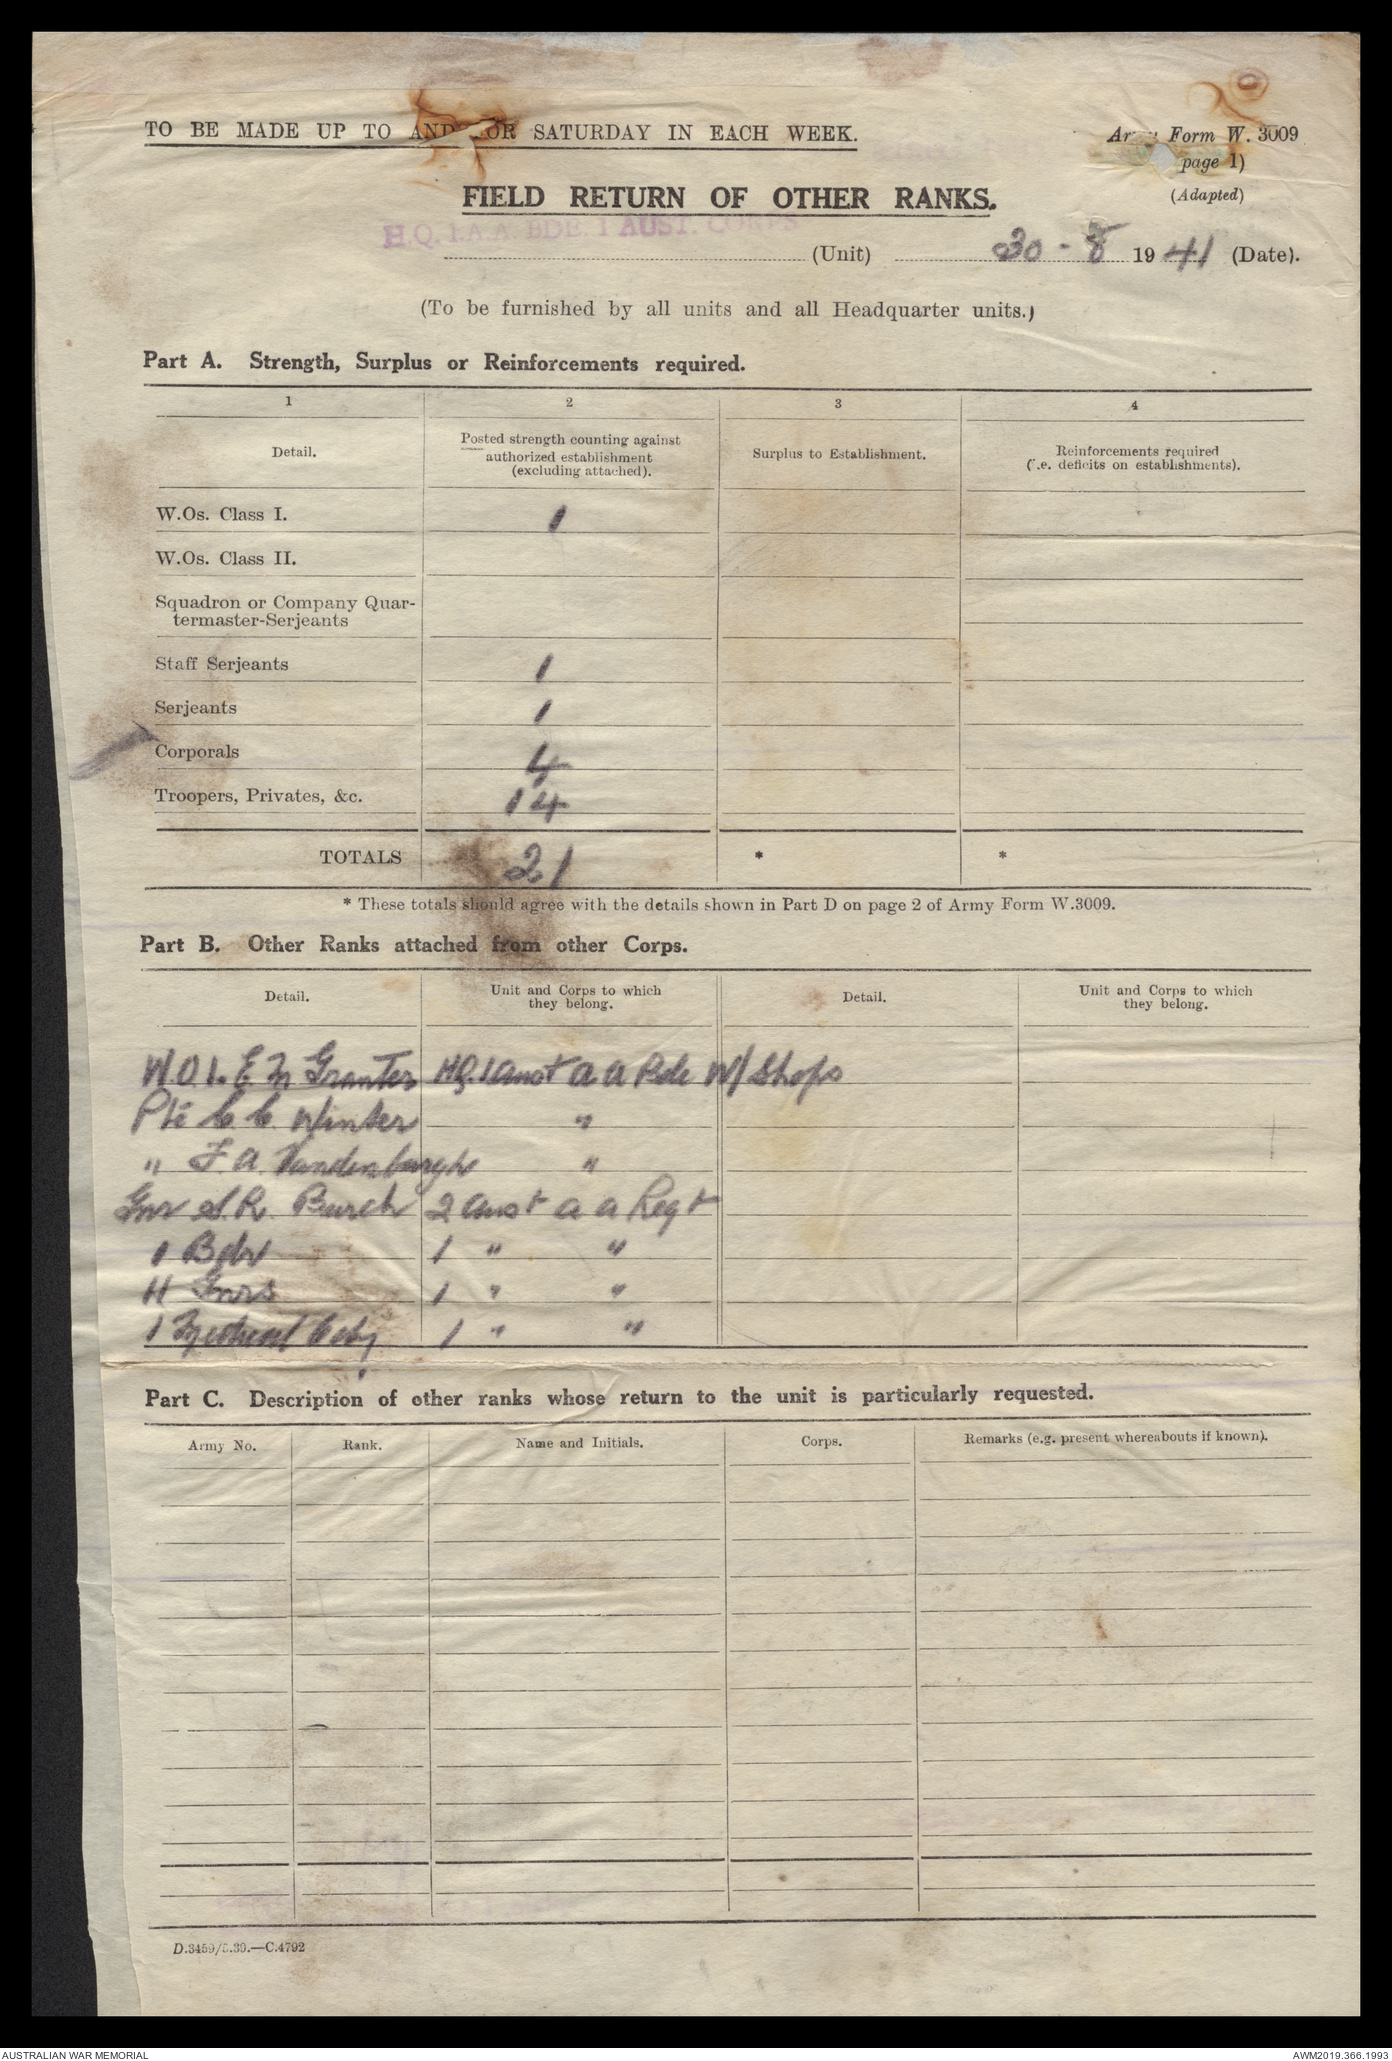 TO BE MADE UP TO AND FOR SATURDAY IN EACH WEEK.
Army Form W. 3009
page 1)
(Adapted)
FIELD RETURN OF OTHER RANKS.
H.Q. 1 A.A. BDE. 1 AUST. CORPS
(Unit) 30 - 8 1941 (Date).
(To be furnished by all units and all Headquarter units.)
Part A. Strength, Surplus or Reinforcements required.
1 2 3 4
Detail.
Posted strength counting against authorized establishment (excluding attached).
Surplus to Establishment.
Reinforcements required (i.e. deficits on establishments).
W.Os. Class I. 1
W.Os. Class II.
Squadron or Company Quar-
termaster-Serjeants
Staff Serjeants 1
Serjeants 1
Corporals 4
Troopers, Privates, &c. 14
TOTALS 21 * *
* These totals should agree with the details shown in Part D on page 2 of Army Form W.3009.
Part B. Other Ranks attached from other Corps.
Detail. Unit and Corps to which they belong. Detail. Unit and Corps to which they belong.
W.O 1. E Granter HQ. 1 Aust a a Bde W/Shops
Pte C C Winter "
" F. A. Vandenburgh "
Gnr S. R. Burch 2 Aust a a Regt
1 Bdr 1 " "
Gnrs 1 " "
1 1 " "
Part C. Description of other ranks whose return to the unit is particularly requested.
Army No. Rank. Name and Initials. Corps. Remarks (e.g. present whereabouts if known).
D.3459/5.39.—C.4792
AUSTRALIAN WAR MEMORIAL AWM2019.366.1993